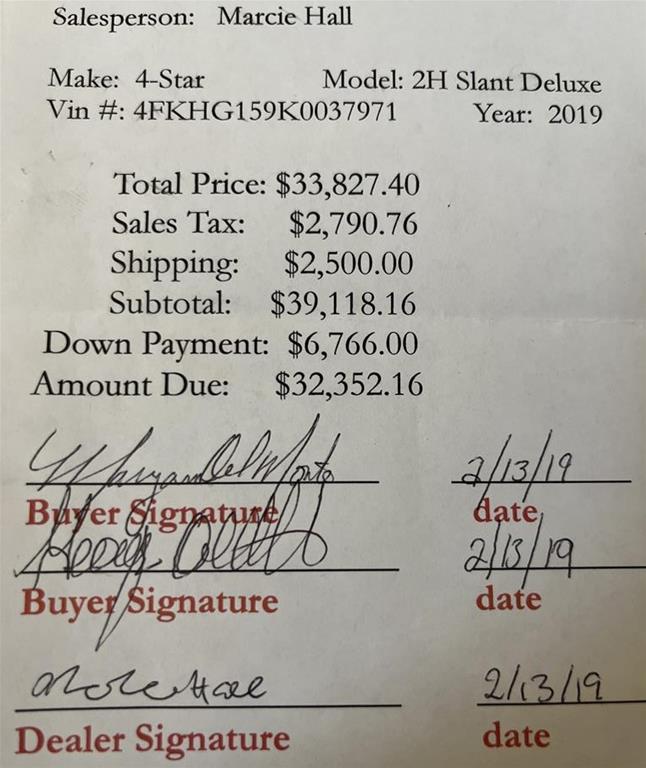 Salesperson: Marcie Hall
Make: 4-Star Model: 2H Slant Deluxe
Vin #: 4FKHG159K0037971 Year: 2019
Total Price: $33,827.40
Sales Tax: $2,790.76
Shipping: $2,500.00
Subtotal: $39,118.16
Down Payment: $6,766.00
Amount Due: $32,352.16
2/13/19
Buyer Signature date
2/13/19
Buyer Signature date
2/13/19
Dealer Signature date